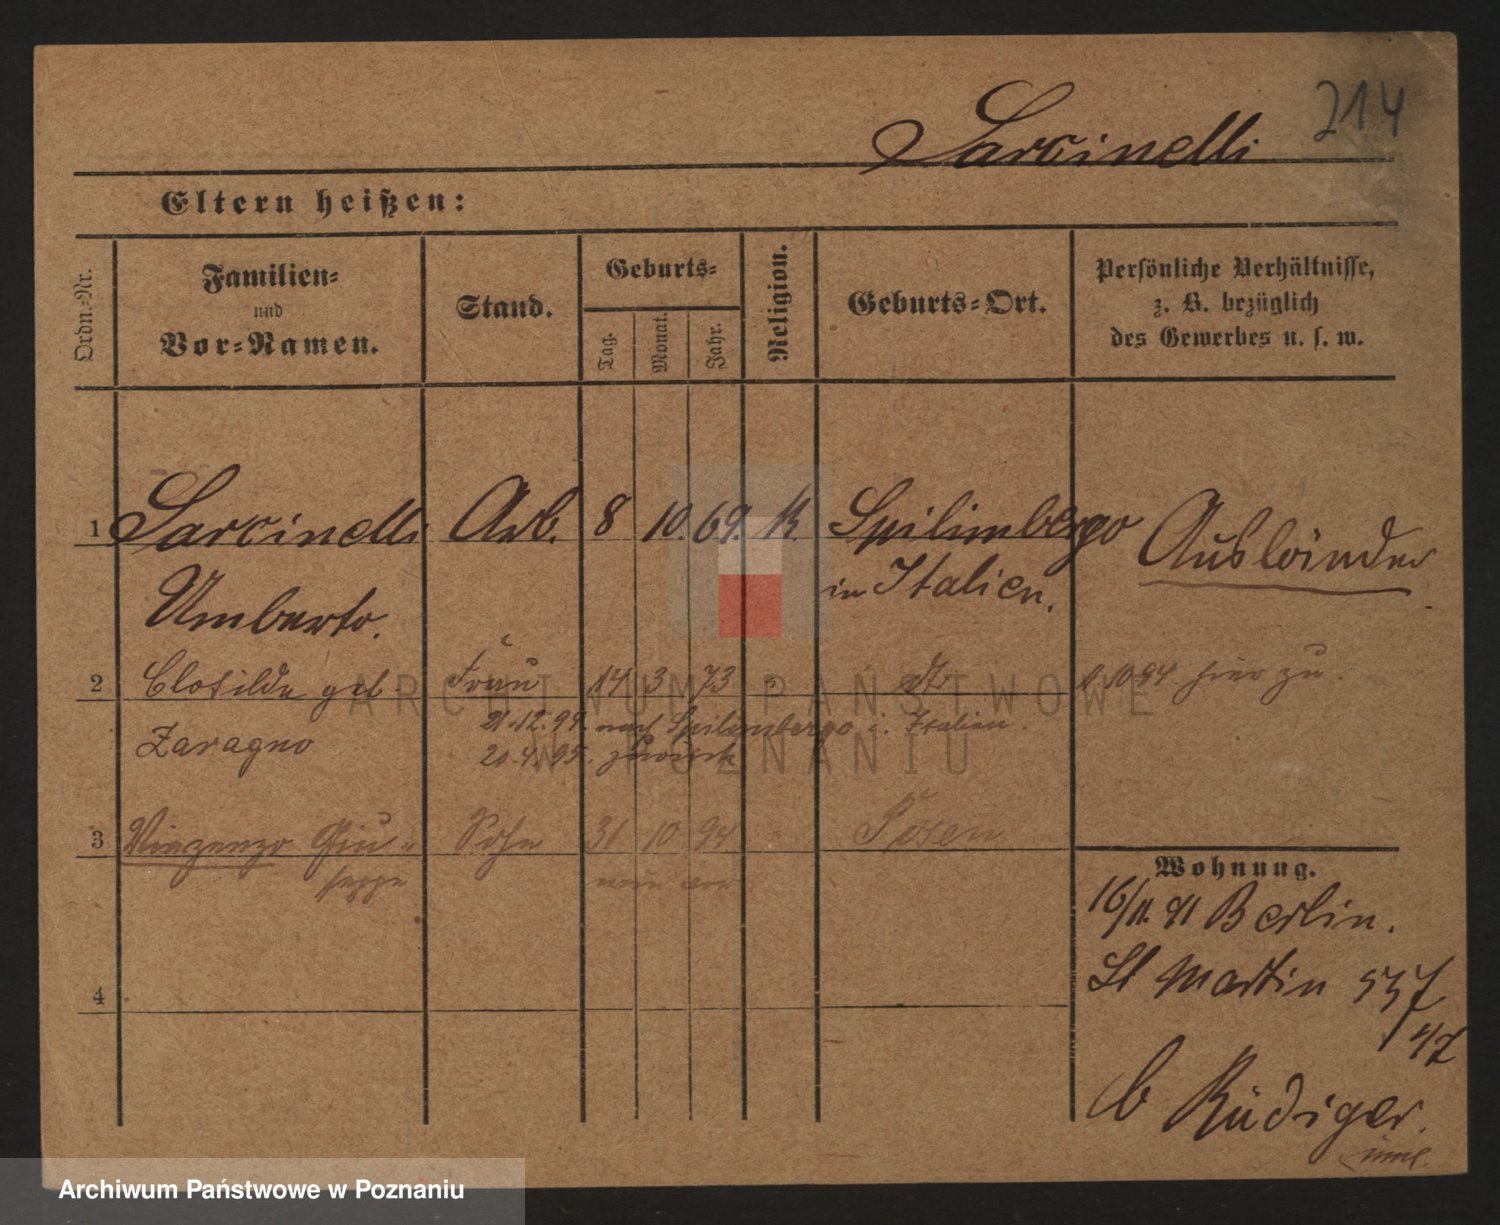 214
Sarcinelli
Eltern heißen:
Ordn.-Nr.
Familien- und Vor-Namen.
Stand.
Geburts-
Tag. Monat. Jahr.
Religion.
Geburts-Ort.
Persönliche Verhältnisse,
z. B. bezüglich
des Gewerbes u. s. w.
1 Sarcinelli Arb. 8 10. 69. K. Spilimbergo Ausländer
Umberto. in Italien.
2 Clotilde geb. Frau 14 3 73 " dt 1. 10 94 hier zu.
Zaragno 21.12.94. nach Spilimbergo i. Italien.
20.4.95. zurück
3 Vinzenzo Giu- Sohn 31 10 94 " Posen
seppe
4
Wohnung.
16/11. 91 Berlin.
St Martin 557
4/7
b Rüdiger.
ARCHIWUM PAŃSTWOWE
W POZNANIU
Archiwum Państwowe w Poznaniu